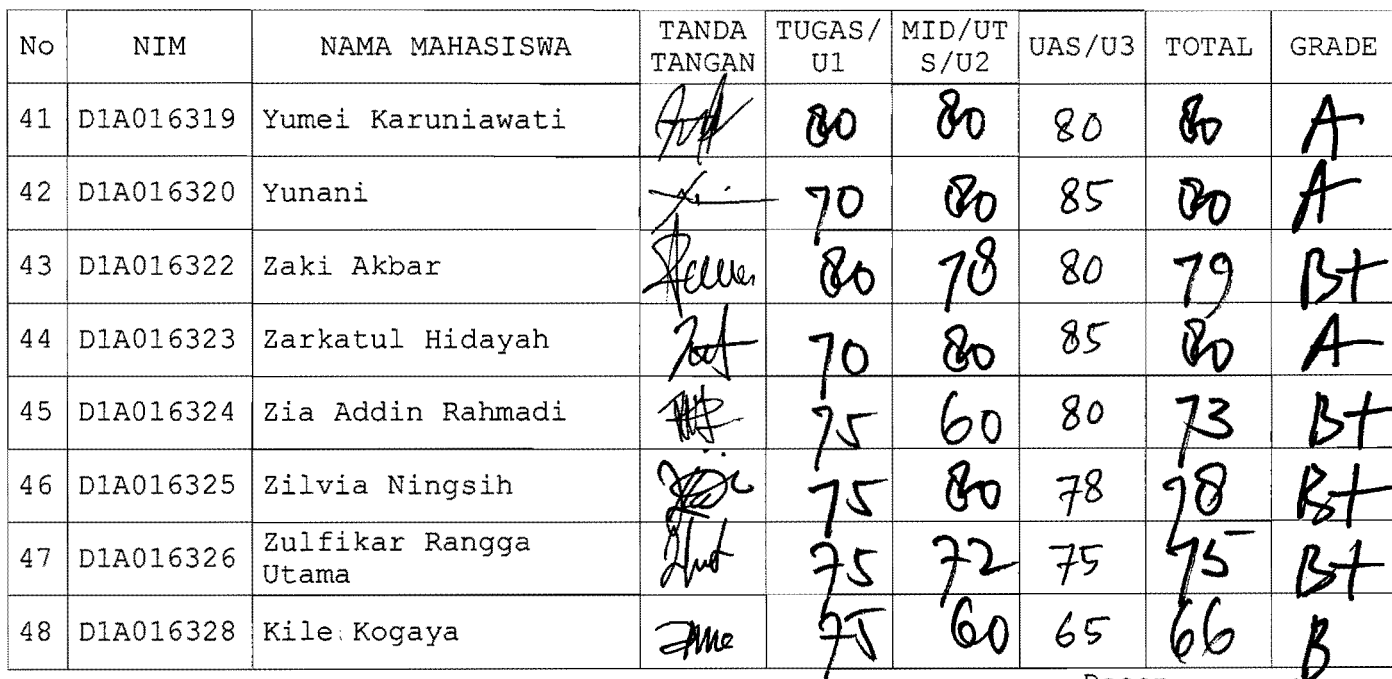 No NIM NAMA MAHASISWA TANDA TANGAN TUGAS/U1 MID/UTS/U2 UAS/U3 TOTAL GRADE
41 D1A016319 Yumei Karuniawati 80 80 80 80 A
42 D1A016320 Yunani 70 80 85 80 A
43 D1A016322 Zaki Akbar 80 78 80 79 B+
44 D1A016323 Zarkatul Hidayah 70 80 85 80 A
45 D1A016324 Zia Addin Rahmadi 75 60 80 73 B+
46 D1A016325 Zilvia Ningsih 75 80 78 78 B+
47 D1A016326 Zulfikar Rangga Utama 75 72 75 75 B+
48 D1A016328 Kile Kogaya 75 60 65 66 B